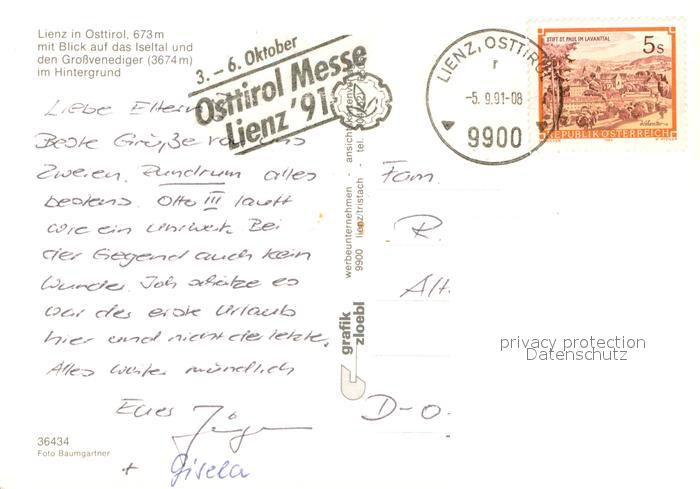 Lienz in Osttirol, 673m
mit Blick auf das Iseltal und
den Großvenediger (3674m)
im Hintergrund
3. – 6. Oktober
Osttirol Messe
Lienz '91
LIENZ, OSTTIROL
r
-5. 9.91-08
9900
STIFT ST. PAUL IM LAVANTTAL
5s
REPUBLIK ÖSTERREICH
Liebe Eltern
Beste Grüße von uns
Zweien. Rundrum alles
bestens. Otto III läuft
wie ein Uhrwerk. Bei
der Gegend auch kein
Wunder. Ich schätze es
war der erste Urlaub
hier und nicht der letzte.
Alles weitere mündlich
Euer Jürgen
+ Gisela
36434
Foto Baumgartner
werbeunternehmen - ansichtskartenverlag
9900 lienz/tristach - tel.
grafik
zloebl
Fam.
R.
Alt.
D-O.
privacy protection
Datenschutz